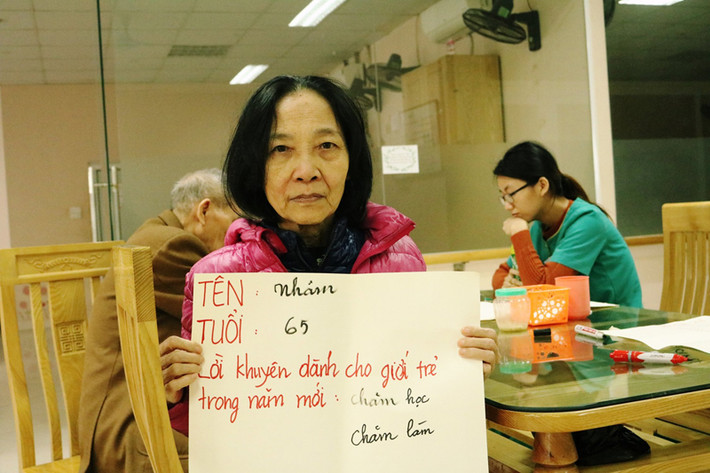 TÊN : Nhám
TUỔI : 65
Lời khuyên dành cho giới trẻ
trong năm mới : chăm học
chăm làm